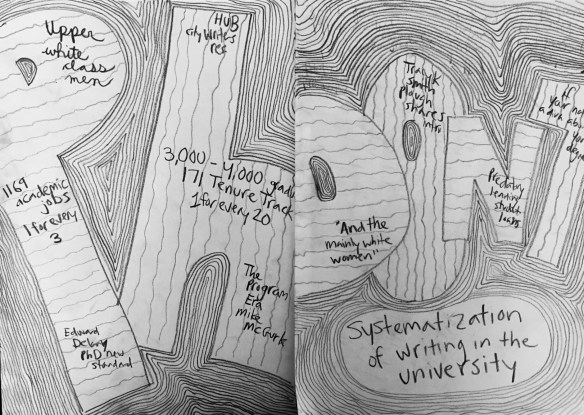 Upper
white
class
men
HUB
city writes
ree
1169
academic
jobs
1 for every
3
3,000 - 4,000 gradu
171 Tenure Track
1 for every 20
Edward
PhD new
standard
The
Program
Era
Mike
McGurk
"And the
mainly white
women"
Tracy K
Smith
plough
shares
intro
Predatory
lending
student
loans
If
your not
Systematization
of writing in the
university